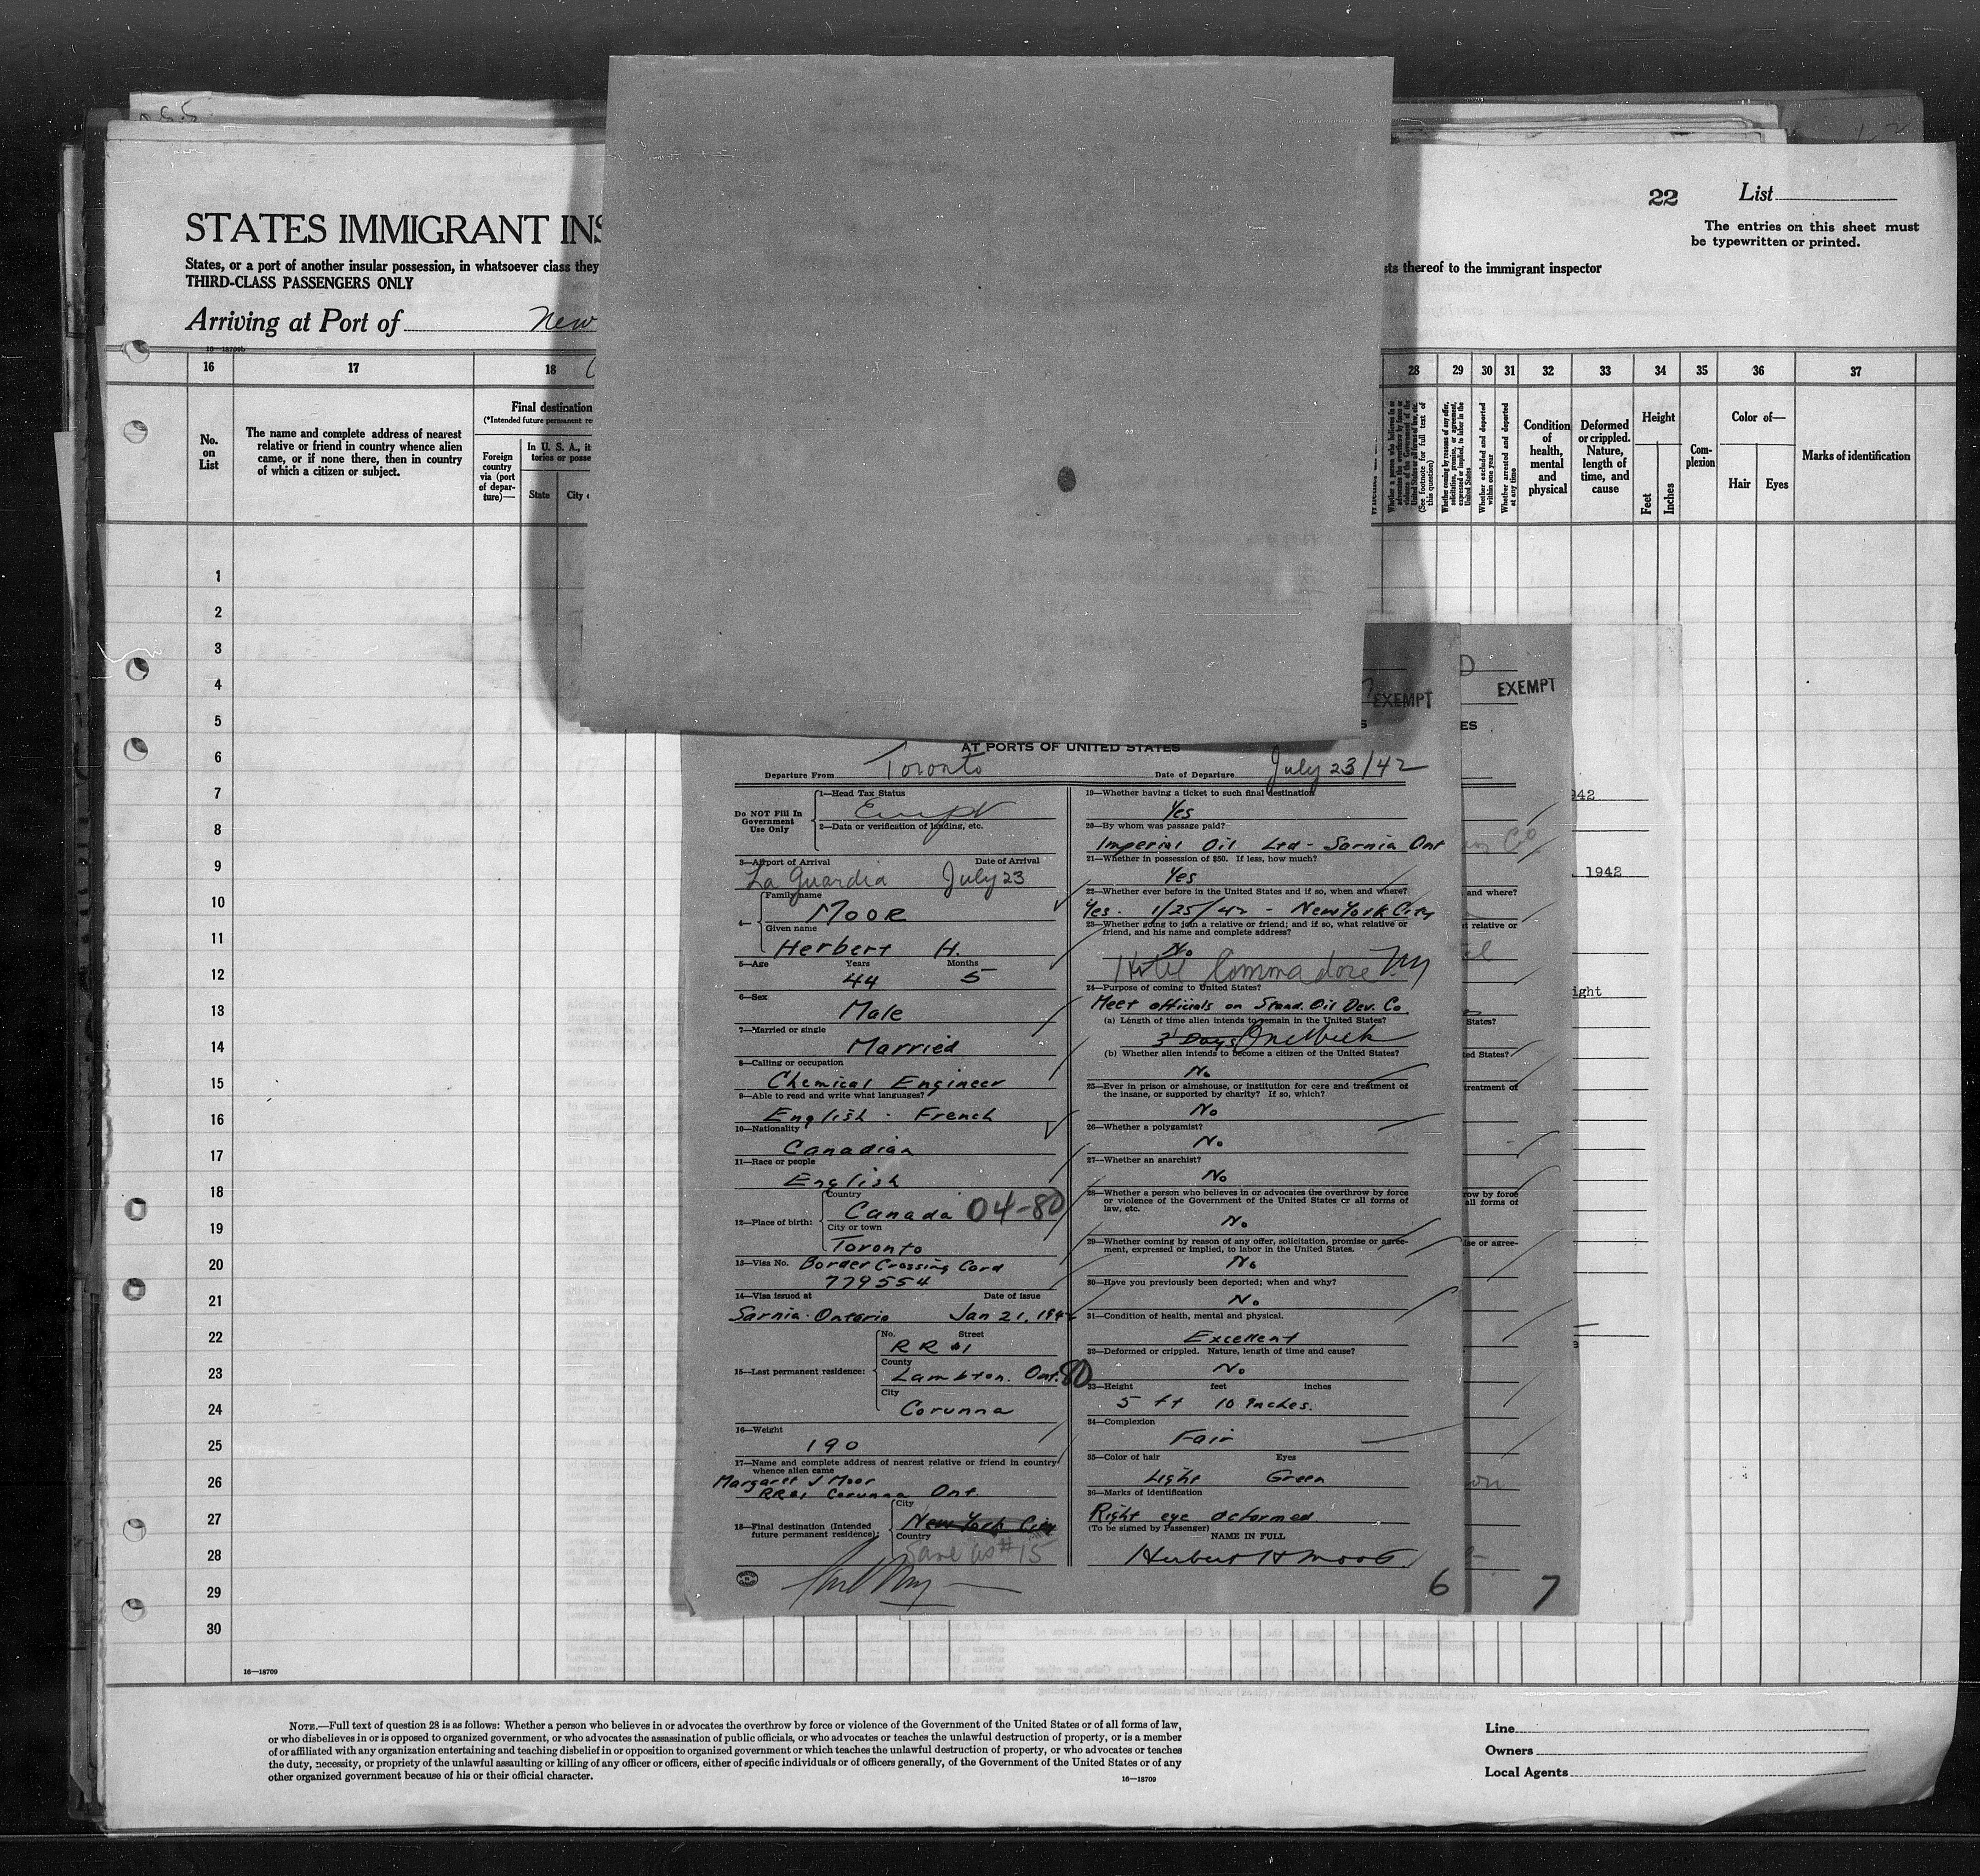 22 List
The entries on this sheet must
be typewritten or printed.
STATES IMMIGRANT INS
States, or a port of another insular possession, in whatsoever class they
sts thereof to the immigrant inspector
THIRD-CLASS PASSENGERS ONLY
Arriving at Port of New
16—18709b
16 17 18 28 29 30 31 32 33 34 35 36 37
No.
on
List
The name and complete address of nearest
relative or friend in country whence alien
came, or if none there, then in country
of which a citizen or subject.
Final destination
(*Intended future permanent re
Foreign
country
via (port
of depar-
ture)—
In U. S. A., it
tories or posse
State City
Whether a person who believes in or
advocates the overthrow by force or
violence of the Government of the
United States or all forms of law, etc.
(See footnote for full text of
this question)
Whether coming by reason of any offer,
solicitation, promise, or agreement,
expressed or implied, to labor in the
United States
Whether excluded and deported
within one year
Whether arrested and deported
at any time
Condition
of
health,
mental
and
physical
Deformed
or crippled.
Nature,
length of
time, and
cause
Height
Feet
Inches
Com-
plexion
Color of—
Hair Eyes
Marks of identification
1
2
3
4
5
6
7
8
9
10
11
12
13
14
15
16
17
18
19
20
21
22
23
24
25
26
27
28
29
30
16—18709
EXEMPT
EXEMPT
AT PORTS OF UNITED STATES
Departure From Toronto Date of Departure July 23/42
Do NOT Fill In
Government
Use Only
1—Head Tax Status
2—Data or verification of landing, etc.
3—Airport of Arrival Date of Arrival
La Guardia July 23
4— Family name
MOOR
Given name
Herbert H.
5—Age Years Months
44 5
6—Sex
Male
7—Married or single
Married
8—Calling or occupation
Chemical Engineer
9—Able to read and write what languages?
English - French
10—Nationality
Canadian
11—Race or people
English
12—Place of birth: Country
Canada 04-80
City or town
Toronto
13—Visa No. Border Crossing Card
779554
14—Visa issued at Date of issue
Sarnia - Ontario Jan 21, 194
15—Last permanent residence:
No. Street
RR #1
County
Lambton. Ont. 80
City
Corunna
16—Weight
190
17—Name and complete address of nearest relative or friend in country
whence alien came
Margaret J Moor
RR#1 Corunna Ont.
18—Final destination (Intended
future permanent residence):
City
New York City
Country
Same as #15
19—Whether having a ticket to such final destination
Yes
20—By whom was passage paid?
Imperial Oil Ltd - Sarnia Ont
21—Whether in possession of $50. If less, how much?
Yes
22—Whether ever before in the United States and if so, when and where?
Yes - 1/25/42 - New York City
23—Whether going to join a relative or friend; and if so, what relative or
friend, and his name and complete address?
No
Hotel Commodore NY
24—Purpose of coming to United States?
Meet officials on Stand. Oil Dev. Co.
(a) Length of time alien intends to remain in the United States?
3 Days One Week
(b) Whether alien intends to become a citizen of the United States?
No
25—Ever in prison or almshouse, or institution for care and treatment of
the insane, or supported by charity? If so, which?
No
26—Whether a polygamist?
No
27—Whether an anarchist?
No
28—Whether a person who believes in or advocates the overthrow by force
or violence of the Government of the United States or all forms of
law, etc.
No
29—Whether coming by reason of any offer, solicitation, promise or agree-
ment, expressed or implied, to labor in the United States.
No
30—Have you previously been deported; when and why?
No
31—Condition of health, mental and physical.
Excellent
32—Deformed or crippled. Nature, length of time and cause?
No
33—Height feet inches
5 ft 10 inches.
34—Complexion
Fair
35—Color of hair Eyes
Light Green
36—Marks of identification
Right eye deformed.
(To be signed by Passenger)
NAME IN FULL
Herbert H Moor
6
7
ES
942
1942
and where?
t relative or
ight
States?
ed States?
treatment of
row by force
all forms of
ise or agree-
NOTE.—Full text of question 28 is as follows: Whether a person who believes in or advocates the overthrow by force or violence of the Government of the United States or of all forms of law,
or who disbelieves in or is opposed to organized government, or who advocates the assassination of public officials, or who advocates or teaches the unlawful destruction of property, or is a member
of or affiliated with any organization entertaining and teaching disbelief in or opposition to organized government or which teaches the unlawful destruction of property, or who advocates or teaches
the duty, necessity, or propriety of the unlawful assaulting or killing of any officer or officers, either of specific individuals or of officers generally, of the Government of the United States or of any
other organized government because of his or their official character.
16—18709
Line
Owners
Local Agents